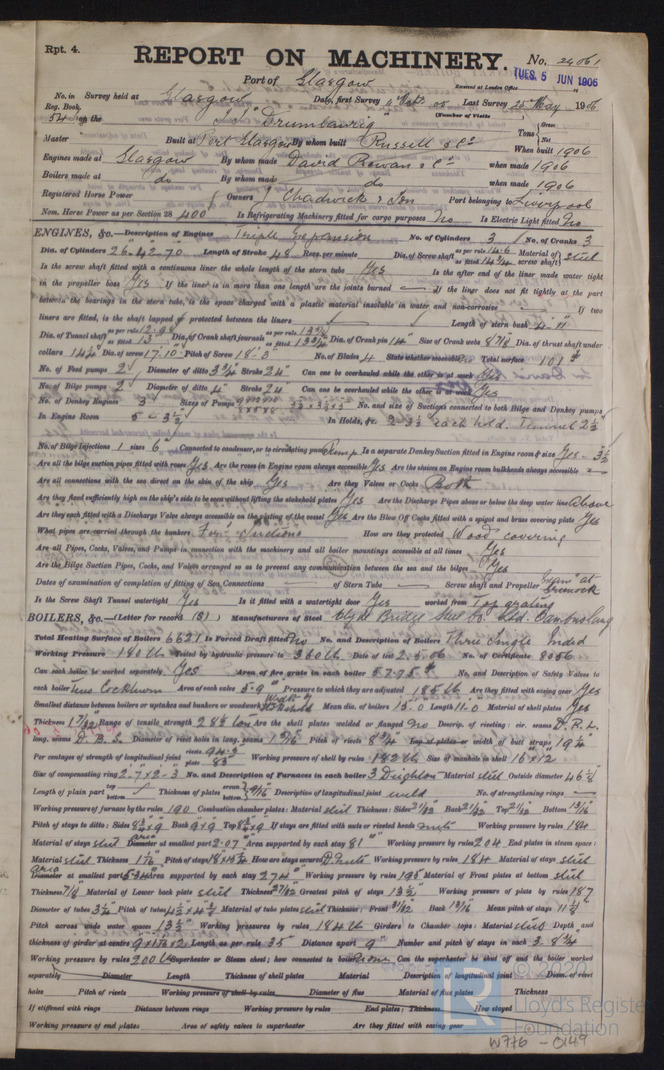 Rpt. 4.
REPORT ON MACHINERY. No. 24061
Port of Glasgow
Received at London Office TUES. 5 JUN 1906
No. in Survey held at Glasgow Date, first Survey Last Survey 25 May 1906
Reg. Book.
on the (Number of Visits)
Master Built at Port Glasgow By whom built Russell & Co When built 1906
Tons Gross Net
Engines made at Glasgow By whom made David Rowan & Co when made 1906
Boilers made at do By whom made do when made 1906
Registered Horse Power Owners J. Chadwick & Son Port belonging to Liverpool
Nom. Horse Power as per Section 28 400 Is Refrigerating Machinery fitted for cargo purposes No Is Electric Light fitted No
ENGINES, &c.—Description of Engines Triple Expansion No. of Cylinders 3 No. of Cranks 3
Dia. of Cylinders 26-42-70 Length of Stroke 48 Revs. per minute Dia. of Screw shaft as per rule 14.6 as fitted 14 3/4 Material of screw shaft steel
Is the screw shaft fitted with a continuous liner the whole length of the stern tube Yes Is the after end of the liner made water tight
in the propeller boss Yes If the liner is in more than one length are the joints burned — If the liner does not fit tightly at the part
between the bearings in the stern tube, is the space charged with a plastic material insoluble in water and non-corrosive — If two
liners are fitted, is the shaft lapped or protected between the liners — Length of stern bush 4'-11"
Dia. of Tunnel shaft as per rule 12.98 as fitted 13" Dia. of Crank shaft journals as per rule as fitted 13 3/4 Dia. of Crank pin 14" Size of Crank webs Dia. of thrust shaft under
collars 14 1/4" Dia. of screw 17'-10" Pitch of Screw 18'-3 No. of Blades 4 State whether moveable Total surface 101
No. of Feed pumps 2 Diameter of ditto 3 3/4 Stroke 24" Can one be overhauled while the other is at work Yes
No. of Bilge pumps 2 Diameter of ditto 4" Stroke 24 Can one be overhauled while the other is at work Yes
No. of Donkey Engines 3 Sizes of Pumps No. and size of Suctions connected to both Bilge and Donkey pumps
In Engine Room 5 - 3 1/2 In Holds, &c. 2-3 1/2 each hold. Tunnel 2 1/2
No. of Bilge Injections 1 sizes 6" Connected to condenser, or to circulating pump Pump Is a separate Donkey Suction fitted in Engine room & size Yes - 3 1/2
Are all the bilge suction pipes fitted with roses Yes Are the roses in Engine room always accessible Yes Are the sluices on Engine room bulkheads always accessible —
Are all connections with the sea direct on the skin of the ship Yes Are they Valves or Cocks Both
Are they fixed sufficiently high on the ship's side to be seen without lifting the stokehold plates Yes Are the Discharge Pipes above or below the deep water line Above
Are they each fitted with a Discharge Valve always accessible on the plating of the vessel Yes Are the Blow Off Cocks fitted with a spigot and brass covering plate Yes
What pipes are carried through the bunkers Forw. Suctions How are they protected Wood covering
Are all Pipes, Cocks, Valves, and Pumps in connection with the machinery and all boiler mountings accessible at all times Yes
Are the Bilge Suction Pipes, Cocks, and Valves arranged so as to prevent any communication between the sea and the bilges Yes
Dates of examination of completion of fitting of Sea Connections of Stern Tube — Screw shaft and Propeller Exam at Greenock
Is the Screw Shaft Tunnel watertight Yes Is it fitted with a watertight door Yes worked from Top grating
BOILERS, &c.—(Letter for record (S)) Manufacturers of Steel Clyde Bridge Steel Co. Ltd. Cambuslang
Total Heating Surface of Boilers 6621 Is Forced Draft fitted No No. and Description of Boilers Three Single Ended
Working Pressure 180 lb Tested by hydraulic pressure to 360 lb Date of test 2.5.06 No. of Certificate 8056
Can each boiler be worked separately Yes Area of fire grate in each boiler 57.75 No. and Description of Safety Valves to
each boiler Two Cockburn Area of each valve 5.9" Pressure to which they are adjusted 185 lb Are they fitted with easing gear Yes
Smallest distance between boilers or uptakes and bunkers or woodwork Mean dia. of boilers 15.0 Length 11.0 Material of shell plates
Thickness 1 7/32 Range of tensile strength 28 1/2 ton Are the shell plates welded or flanged No Descrip. of riveting: cir. seams D.R.L.
long. seams D.B.S. Diameter of rivet holes in long. seams 1 5/16 Pitch of rivets 8 3/4 Lap of plates or width of butt straps 19 1/4"
Per centages of strength of longitudinal joint rivets plate Working pressure of shell by rules 182 lb Size of manhole in shell 16" x 12"
Size of compensating ring 2-7 x 2-3 No. and Description of Furnaces in each boiler 3 Deighton Material steel Outside diameter 46 1/2
Length of plain part top bottom Thickness of plates crown bottom 9/16 Description of longitudinal joint weld No. of strengthening rings —
Working pressure of furnace by the rules 190 Combustion chamber plates: Material steel Thickness: Sides 21/32 Back 21/32 Top 21/32 Bottom 13/16
Pitch of stays to ditto: Sides Back 9 x 9 Top If stays are fitted with nuts or riveted heads nuts Working pressure by rules 184
Material of stays steel area Diameter at smallest part 2.07 Area supported by each stay 81" Working pressure by rules 204 End plates in steam space:
Material steel Thickness Pitch of stays How are stays secured D. Nuts Working pressure by rules 184 Material of stays steel
area Diameter at smallest part Area supported by each stay 274" Working pressure by rules 195 Material of Front plates at bottom steel
Thickness 7/8 Material of Lower back plate steel Thickness 27/32 Greatest pitch of stays 13 1/2" Working pressure of plate by rules 187
Diameter of tubes 3 1/4 Pitch of tubes Material of tube plates steel Thickness: Front 31/32 Back 13/16 Mean pitch of stays
Pitch across wide water spaces 13 1/2" Working pressures by rules 184 lb Girders to Chamber tops: Material steel Depth and
thickness of girder at centre Length as per rule Distance apart 9" Number and pitch of stays in each 3. 8 3/4
Working pressure by rules 200 lb Superheater or Steam chest; how connected to boiler None Can the superheater be shut off and the boiler worked
separately Diameter Length Thickness of shell plates Material Description of longitudinal joint Diam. of rivet
holes Pitch of rivets Working pressure of shell by rules Diameter of flue Material of flue plates Thickness
If stiffened with rings Distance between rings Working pressure by rules End plates: Thickness How stayed
Working pressure of end plates Area of safety valves to superheater Are they fitted with easing gear
© 2020
Lloyd's Register
Foundation
W776 - 0149